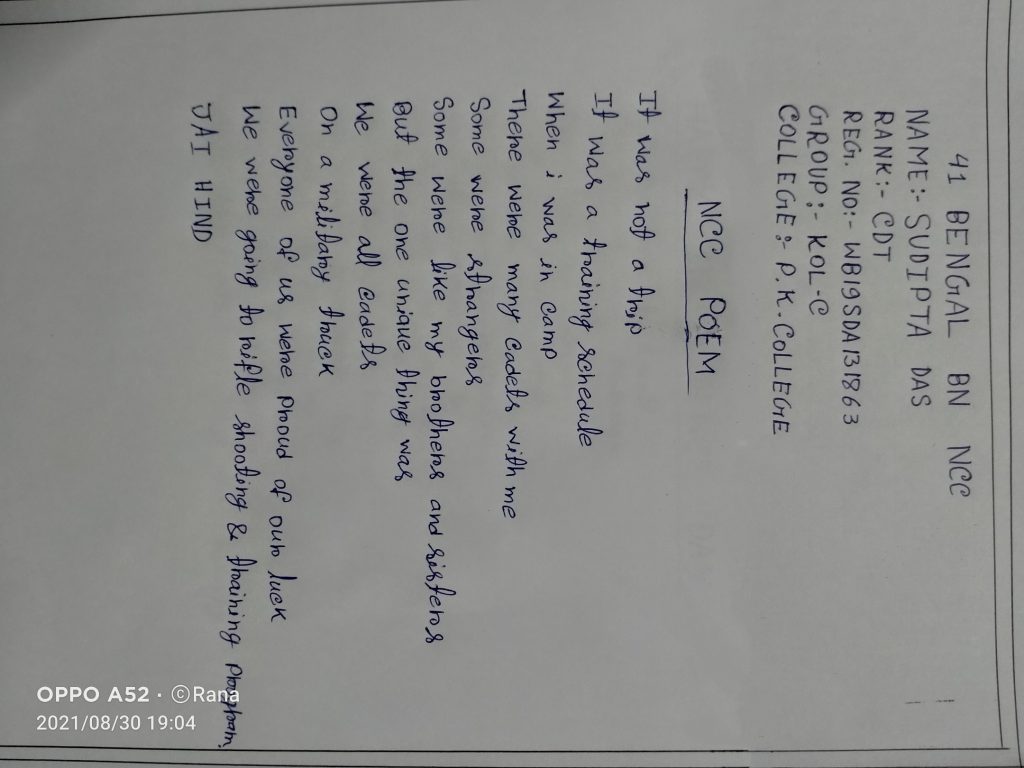 41 BENGAL BN NCC
NAME:- SUDIPTA DAS
RANK:- CDT
REG. NO:- WB19SDA131863
GROUP:- KOL-C
COLLEGE:- P.K. COLLEGE
NCC POEM
It was not a trip
It was a training schedule
When i was in camp
There were many cadets with me
Some were strangers
Some were like my brothers and sisters
But the one unique thing was
We were all cadets
On a military truck
Everyone of us were proud of our luck
We were going to rifle shooting & training program,
JAI HIND
OPPO A52 · ©Rana
2021/08/30 19:04